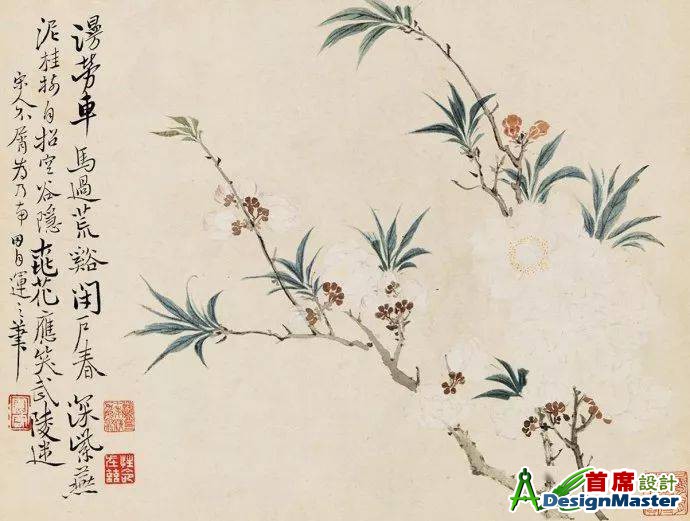 漫勞車馬過荒谿閉戶春深紫燕
泥桂樹自招空谷隱桃花應笑武陵迷
宋人不屑為乃南田自運之筆
首席設計
ADesignMaster